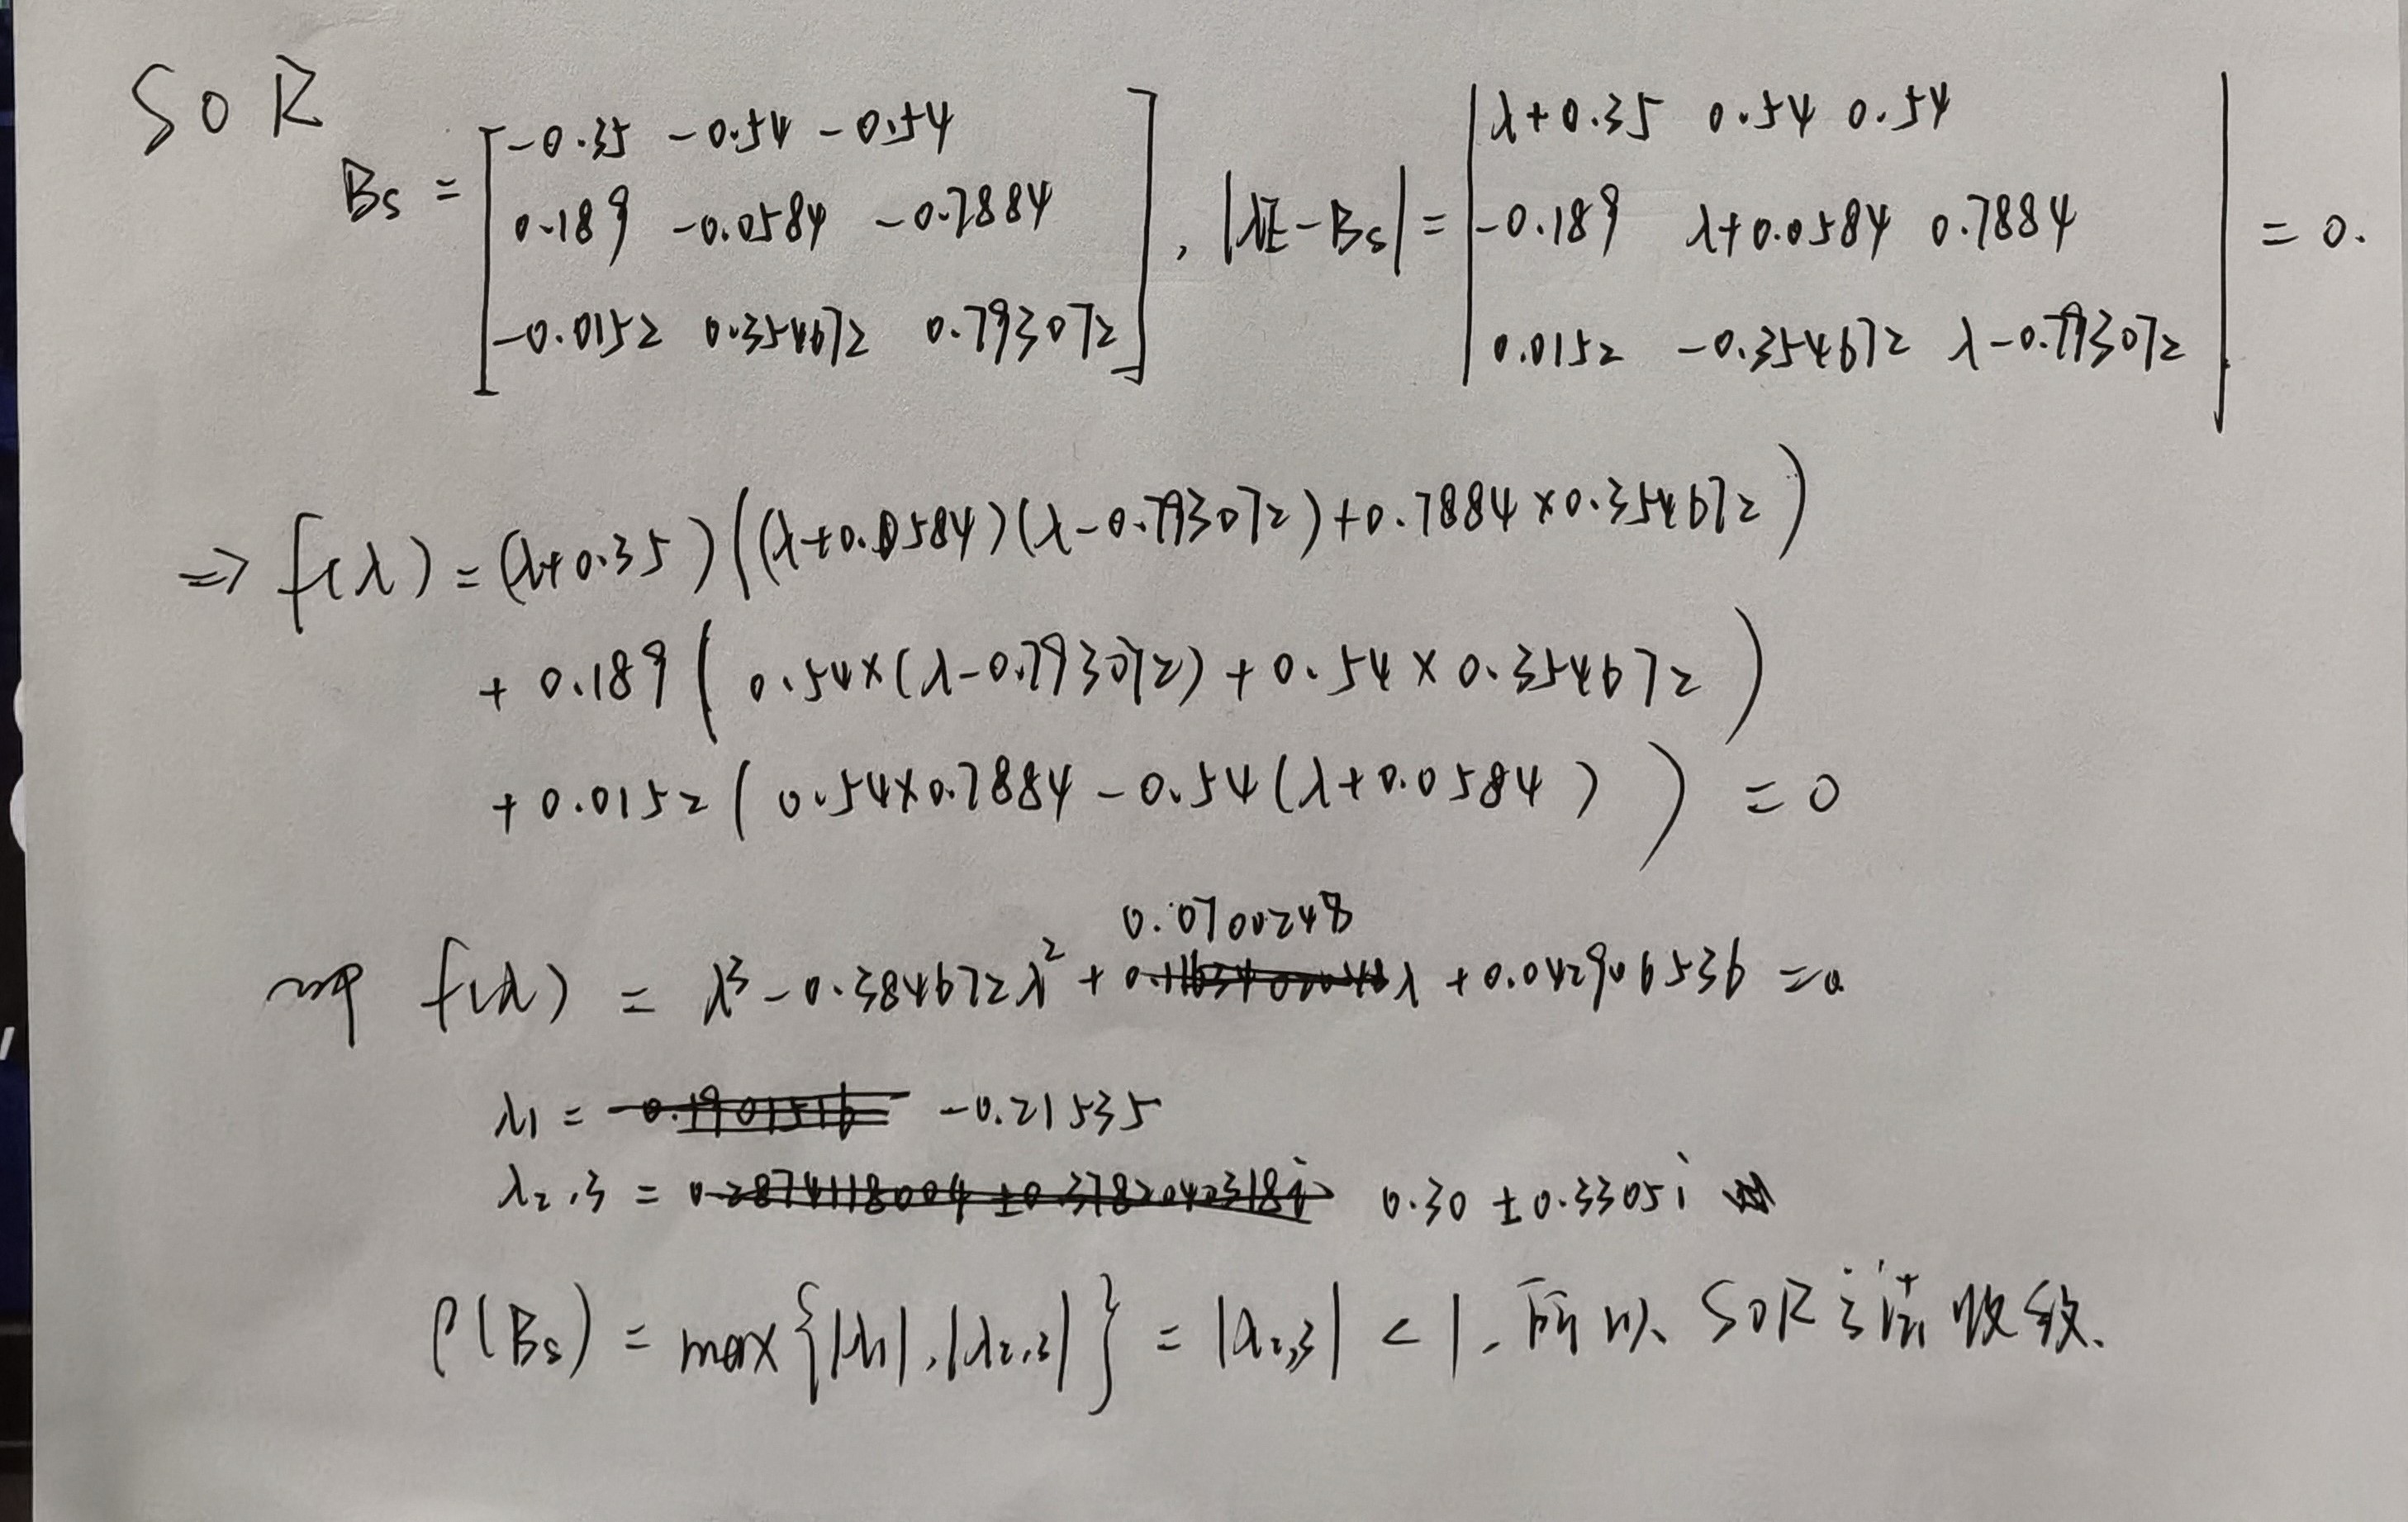 SOR
Bs = [ -0.35 -0.54 -0.54
0.189 -0.0584 -0.7884
-0.0152 0.354672 0.793072 ] , |λE-Bs| = | λ+0.35 0.54 0.54
-0.189 λ+0.0584 0.7884
0.0152 -0.354672 λ-0.793072 | = 0.
=> f(λ) = (λ+0.35)((λ+0.0584)(λ-0.793072)+0.7884×0.354672)
+ 0.189( 0.54×(λ-0.793072) + 0.54×0.354672 )
+ 0.0152( 0.54×0.7884 - 0.54(λ+0.0584) ) = 0
0.0700248
即 f(λ) = λ³ - 0.384672λ² + λ + 0.042906536 = 0
λ1 = -0.1901516 -0.21535
λ2,3 = 0.2874118004 ± 0.3782042318i 0.30 ± 0.3305i
ρ(Bs) = max{|λ1|, |λ2,3|} = |λ2,3| < 1, 所以 SOR 法 收敛.